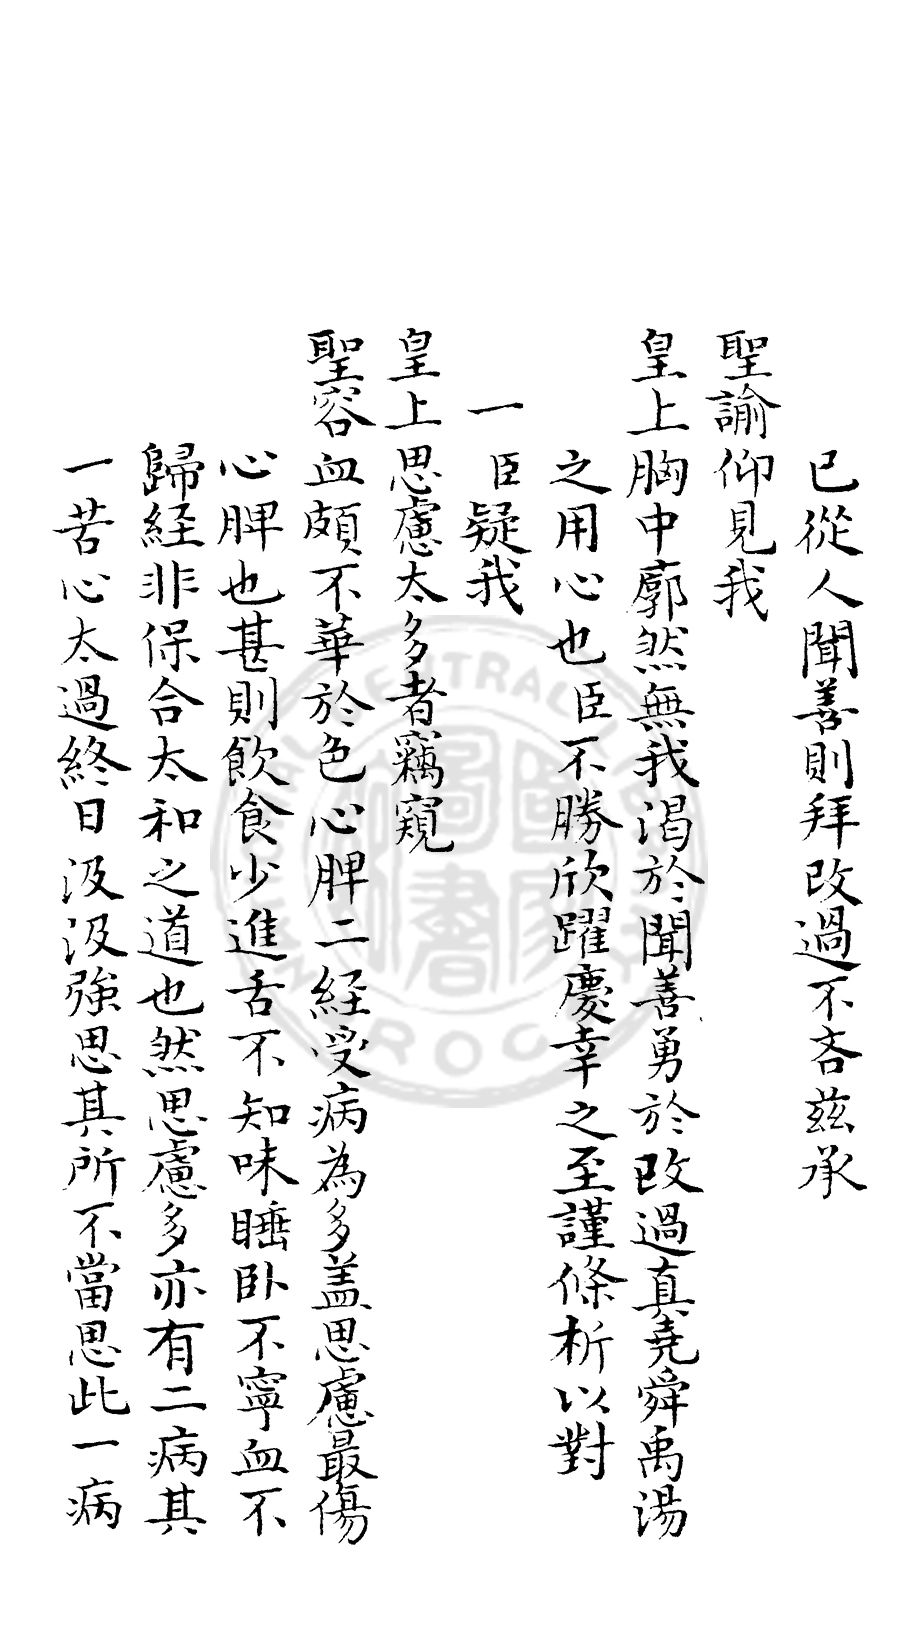 已從人聞善則拜改過不吝茲承
聖諭仰見我
皇上胸中廓然無我渴於聞善勇於改過真堯舜禹湯
之用心也臣不勝欣躍慶幸之至謹條析以對
一臣疑我
皇上思慮太多者竊窺
聖容血頗不華於色心脾二經受病為多盖思慮最傷
心脾也甚則飲食少進舌不知味睡卧不寧血不
歸経非保合太和之道也然思慮多亦有二病其
一苦心太過終日汲汲強思其所不當思此一病